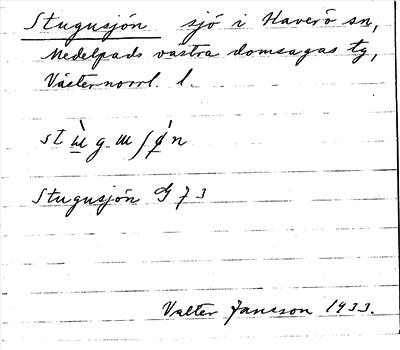 Stugusjön sjö i Haverö sn,
Medelpads västra domsagas tg,
Västernorrl. l.
Stugusjön G 73
Valter Jansson 1933.